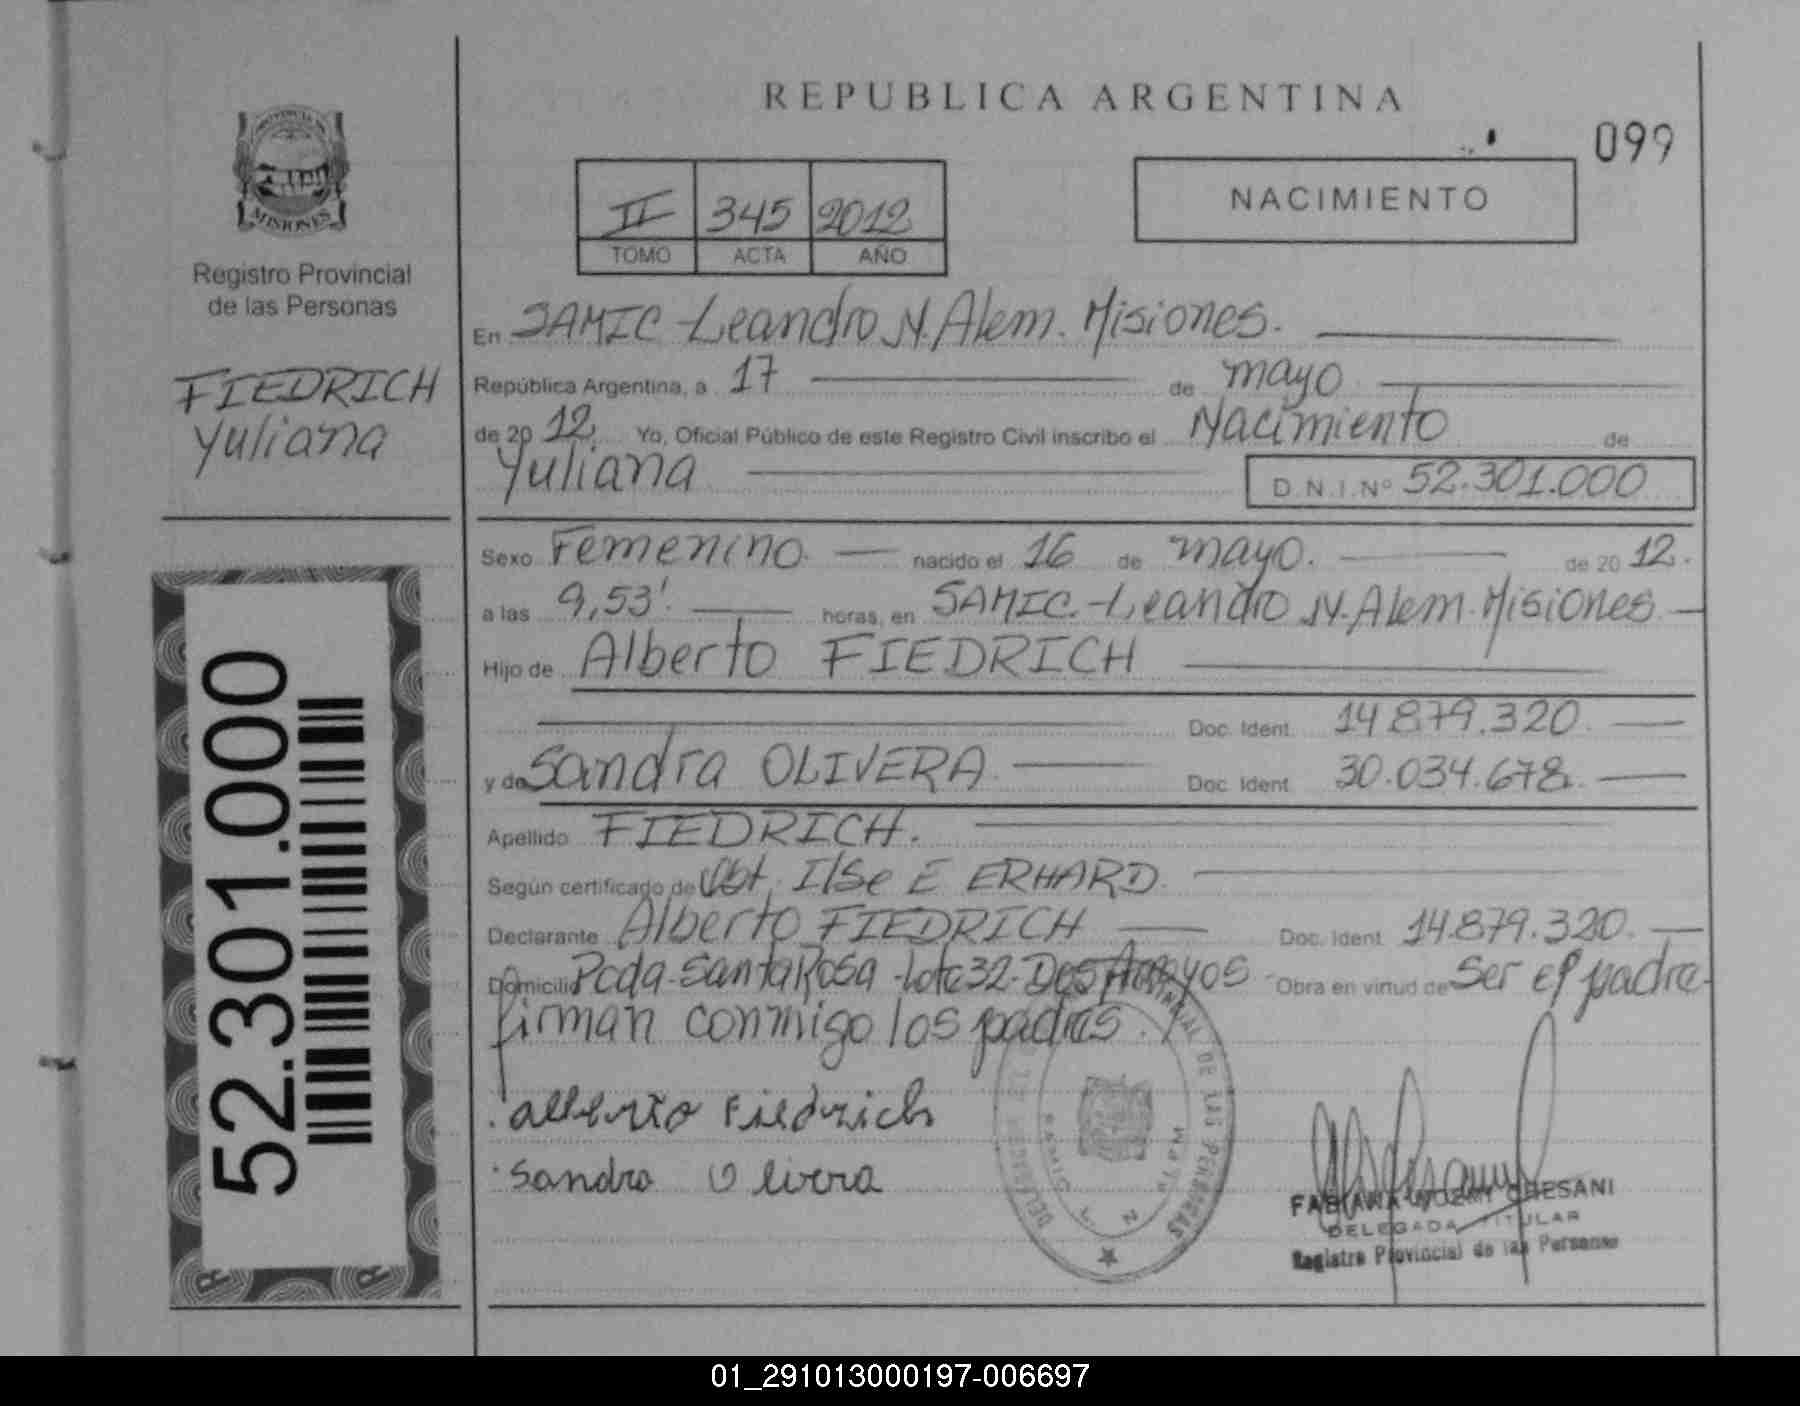 REPUBLICA ARGENTINA
099
PROVINCIA DE
MISIONES
Registro Provincial
de las Personas
FIEDRICH
Yuliana
52.301.000
II 345 2012
TOMO ACTA AÑO
NACIMIENTO
En SAMIC-Leandro N. Alem. Misiones.
República Argentina, a 17 de mayo
de 2012. Yo, Oficial Público de este Registro Civil inscribo el Nacimiento de
Yuliana D.N.I.Nº 52.301.000
Sexo Femenino. nacido el 16 de mayo. de 2012.
a las 9,53'. horas, en SAMIC.-Leandro N. Alem. Misiones
Hijo de Alberto FIEDRICH
Doc. Ident. 14.879.320.
y de Sandra OLIVERA. Doc. Ident. 30.034.678.
Apellido FIEDRICH.
Según certificado de Obt. Ilse E ERHARD.
Declarante Alberto FIEDRICH Doc. Ident. 14.879.320.
Domicilio Pcda-Santa Rosa -Lote 32-Dos Arroyos - Obra en virtud de Ser el padre.
firman conmigo los padres.
Alberto Fiedrich
Sandra Olivera
DE LAS PERSONAS
FABIANA NOEMI CHESANI
DELEGADA TITULAR
Registro Provincial de las Personas
01_291013000197-006697